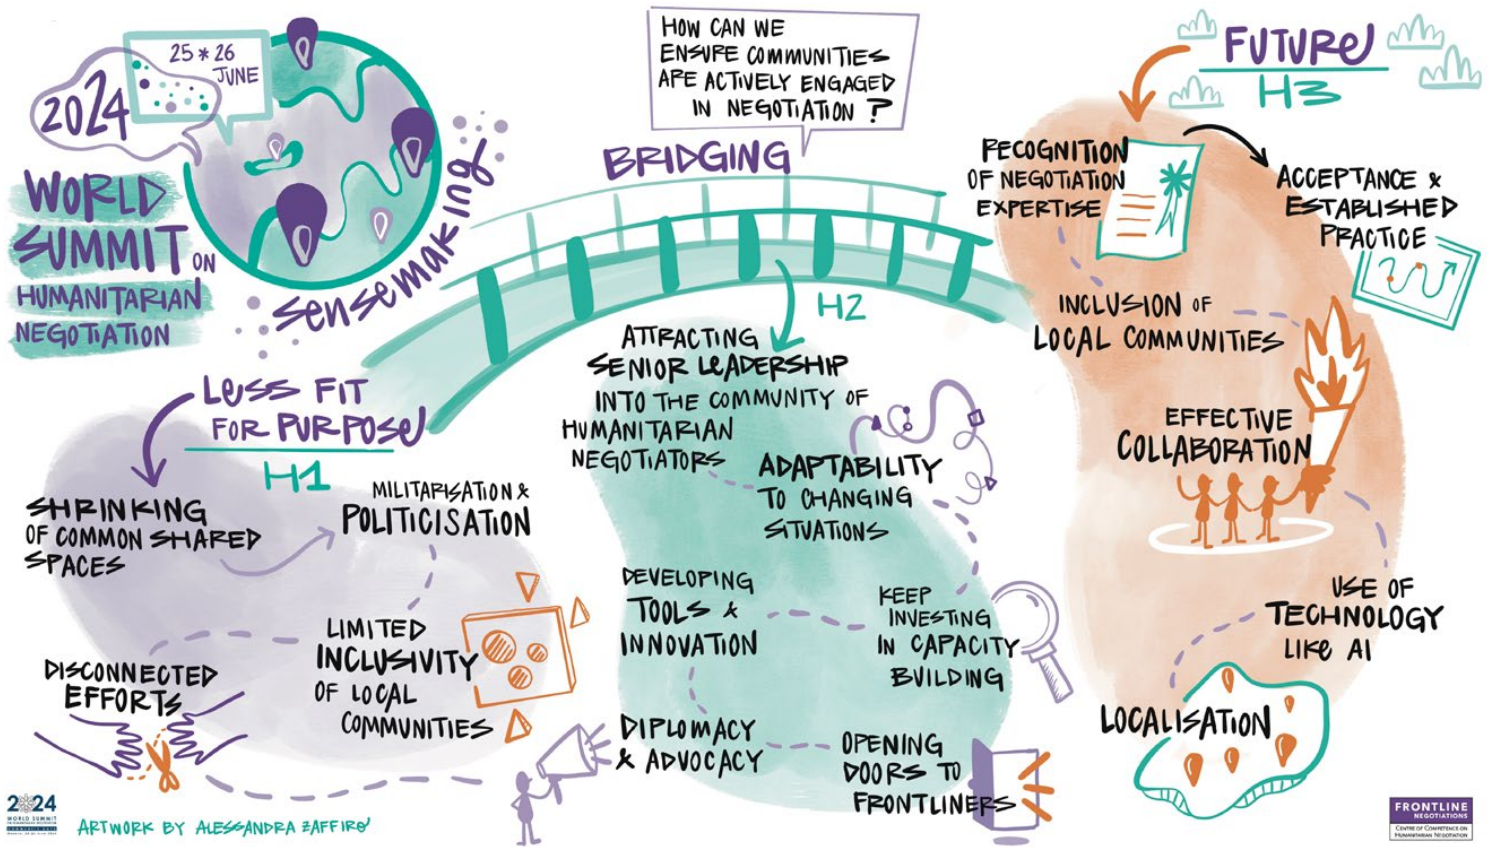 2024
25 * 26
JUNE
WORLD
SUMMIT ON
HUMANITARIAN
NEGOTIATION
sensemaking
HOW CAN WE
ENSURE COMMUNITIES
ARE ACTIVELY ENGAGED
IN NEGOTIATION ?
BRIDGING
H2
FUTURE
H3
LESS FIT
FOR PURPOSE
H1
SHRINKING
OF COMMON SHARED
SPACES
MILITARISATION &
POLITICISATION
LIMITED
INCLUSIVITY
OF LOCAL
COMMUNITIES
DISCONNECTED
EFFORTS
ATTRACTING
SENIOR LEADERSHIP
INTO THE COMMUNITY OF
HUMANITARIAN
NEGOTIATORS
ADAPTABILITY
TO CHANGING
SITUATIONS
DEVELOPING
TOOLS &
INNOVATION
KEEP
INVESTING
IN CAPACITY
BUILDING
DIPLOMACY
& ADVOCACY
OPENING
DOORS TO
FRONTLINERS
RECOGNITION
OF NEGOTIATION
EXPERTISE
ACCEPTANCE &
ESTABLISHED
PRACTICE
INCLUSION OF
LOCAL COMMUNITIES
EFFECTIVE
COLLABORATION
USE OF
TECHNOLOGY
LIKE AI
LOCALISATION
2024
WORLD SUMMIT
ARTWORK BY ALESSANDRA ZAFFIRO
FRONTLINE
NEGOTIATIONS
CENTRE OF COMPETENCE ON
HUMANITARIAN NEGOTIATION